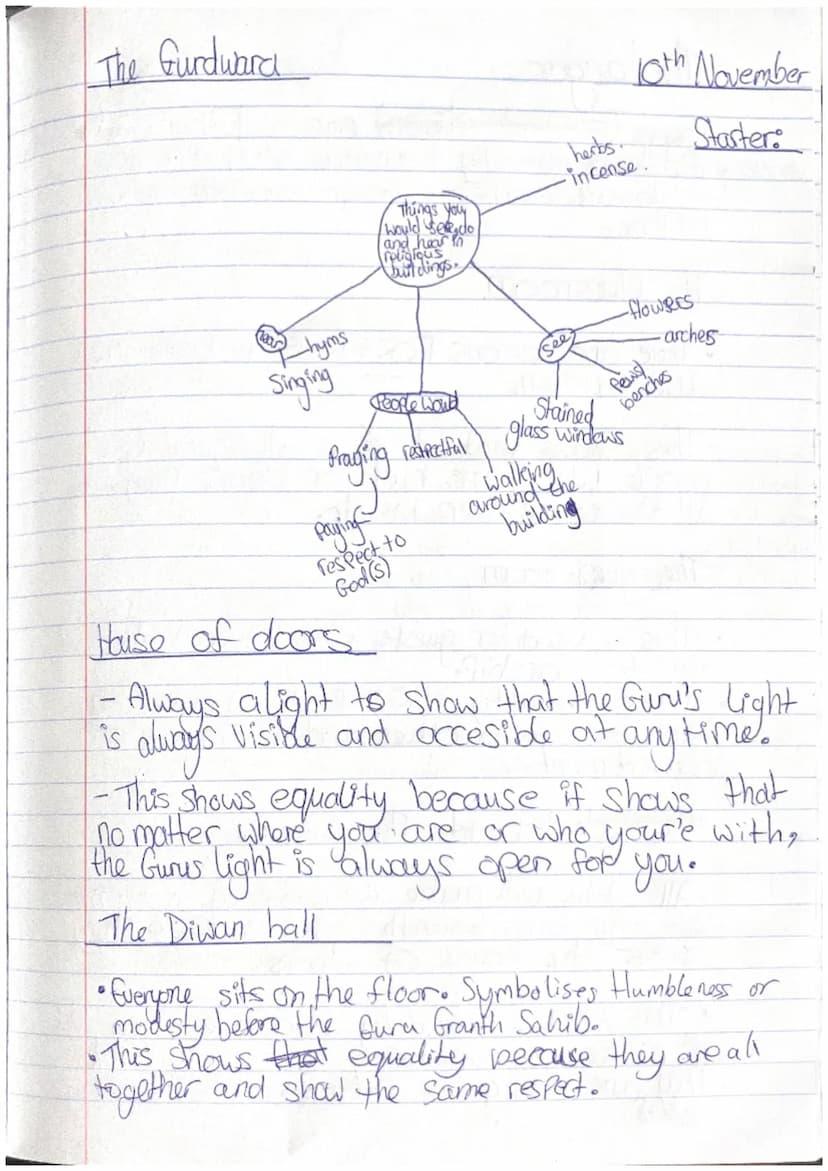 The Gurdwara
10th November
Starter:
herbs.
incense.
Things you
would see, do
and hear in
religious
buildings.
hear
hyms
Singing
People would
Praying
respectful
paying
respect to
God(s)
walking
around the
building
see
flowers
arches
pews/
benches
Stained
glass windows
House of doors
- Always alight to show that the Guru's light
is always visible and accesible at any time.
- This shows equality because it shows that
no matter where you are or who your'e with,
the Gurus light is always open for you.
The Diwan hall
• Everyone sits on the floor. Symbolises Humbleness or
modesty before the Guru Granth Sahib.
• This shows that equality because they are all
together and show the same respect.